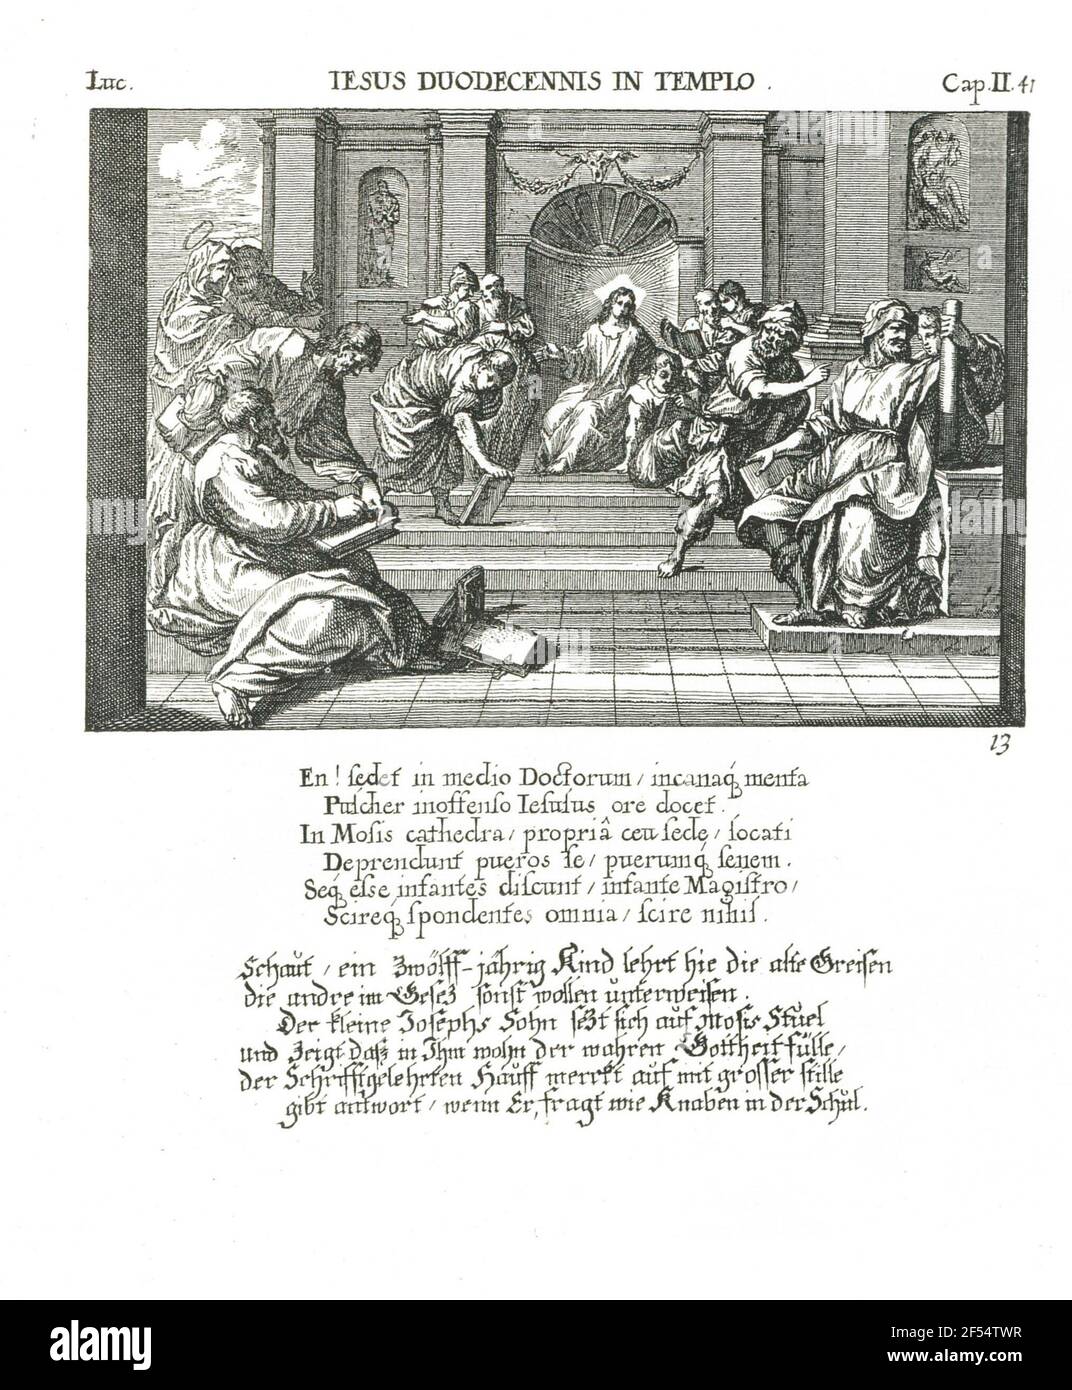 Luc. IESUS DUODECENNIS IN TEMPLO. Cap. II. 41
13
En! sedet in medio Doctorum / incanaq́ menta
Pulcher inoffenso Iesulus ore docet.
In Mosis cathedra / propriâ ceu sede / locati
Deprendunt pueros se / puerumq́ senem.
Seq́ esse infantes discunt / infante Magistro /
Scireq́ spondentes omnia / scire nihil.
Schaut / ein Zwölff-jährig Kind lehrt hie die alte Greisen
die andre im Gesez sonst wollen unterweisen.
Der kleine Josephs Sohn sezt sich auf Mosis Stuel
und Zeigt daß in Ihm wohn der wahren Gottheit fülle /
der Schrifftgelehrten Hauff merckt auf mit grosser stille
gibt antwort / wenn Er fragt wie Knaben in der Schul.
alamy
alamy
alamy
alamy
a
a
a
alamy
Image ID: 2F54TWR
www.alamy.com